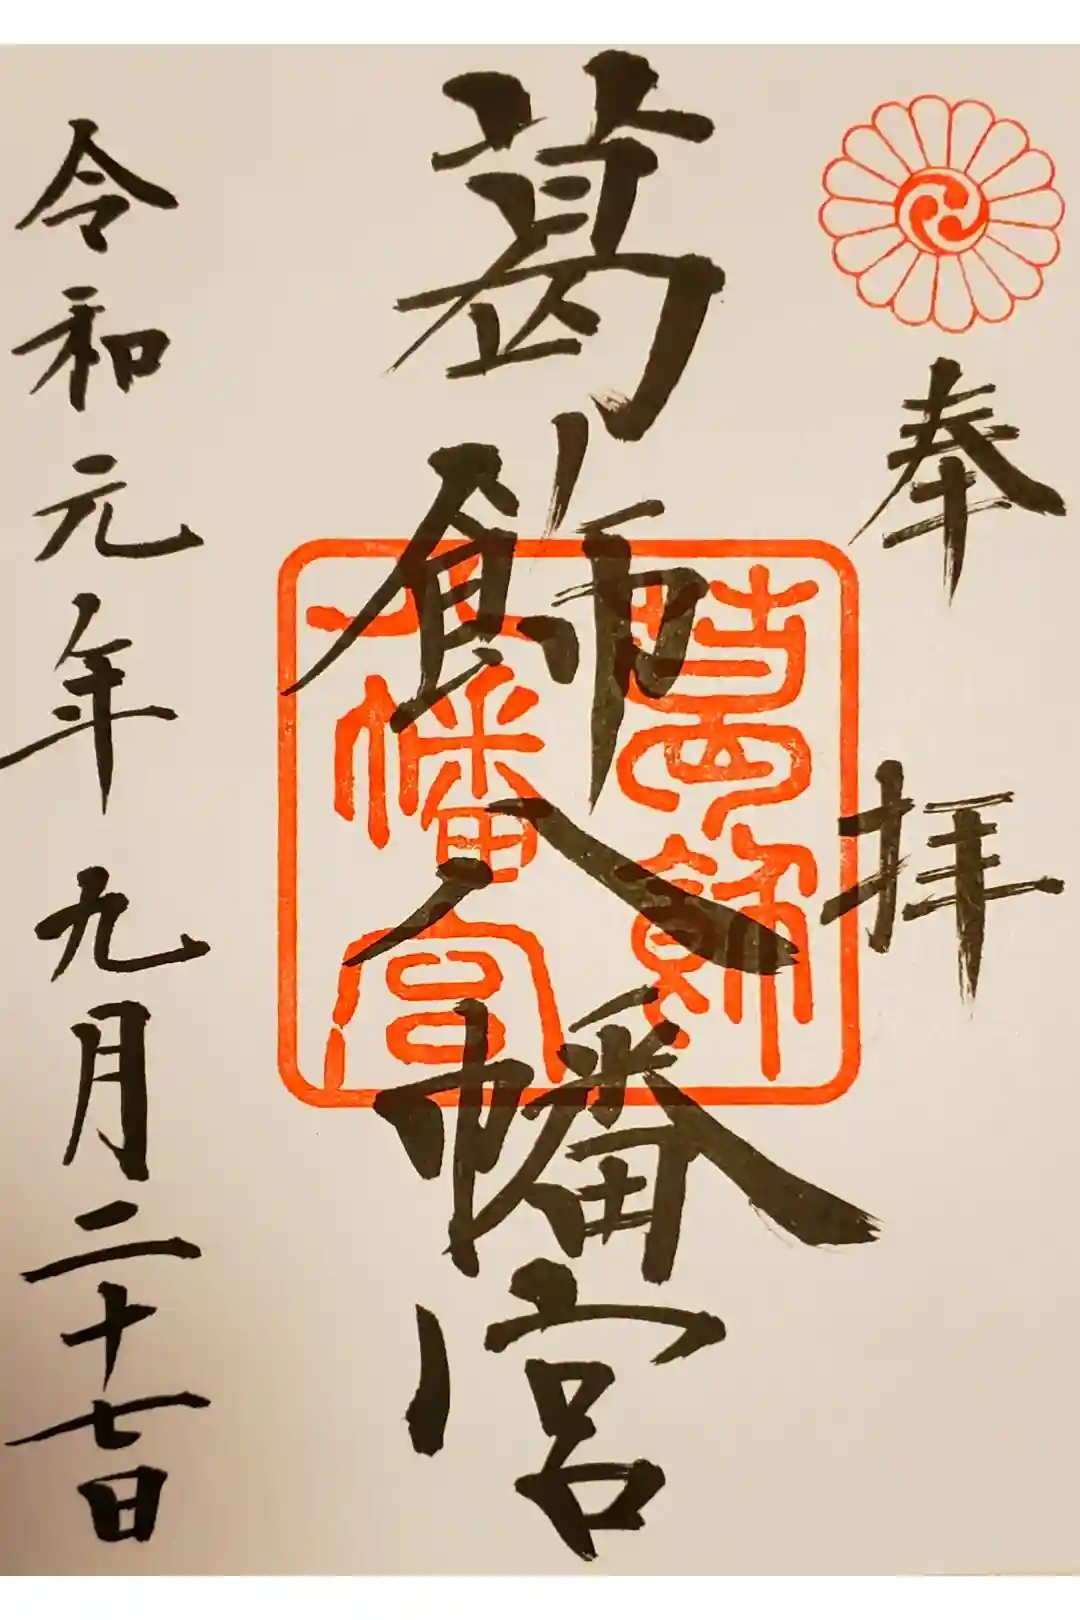 奉拝
葛飾八幡宮
葛飾
八幡宮
令和元年九月二十七日